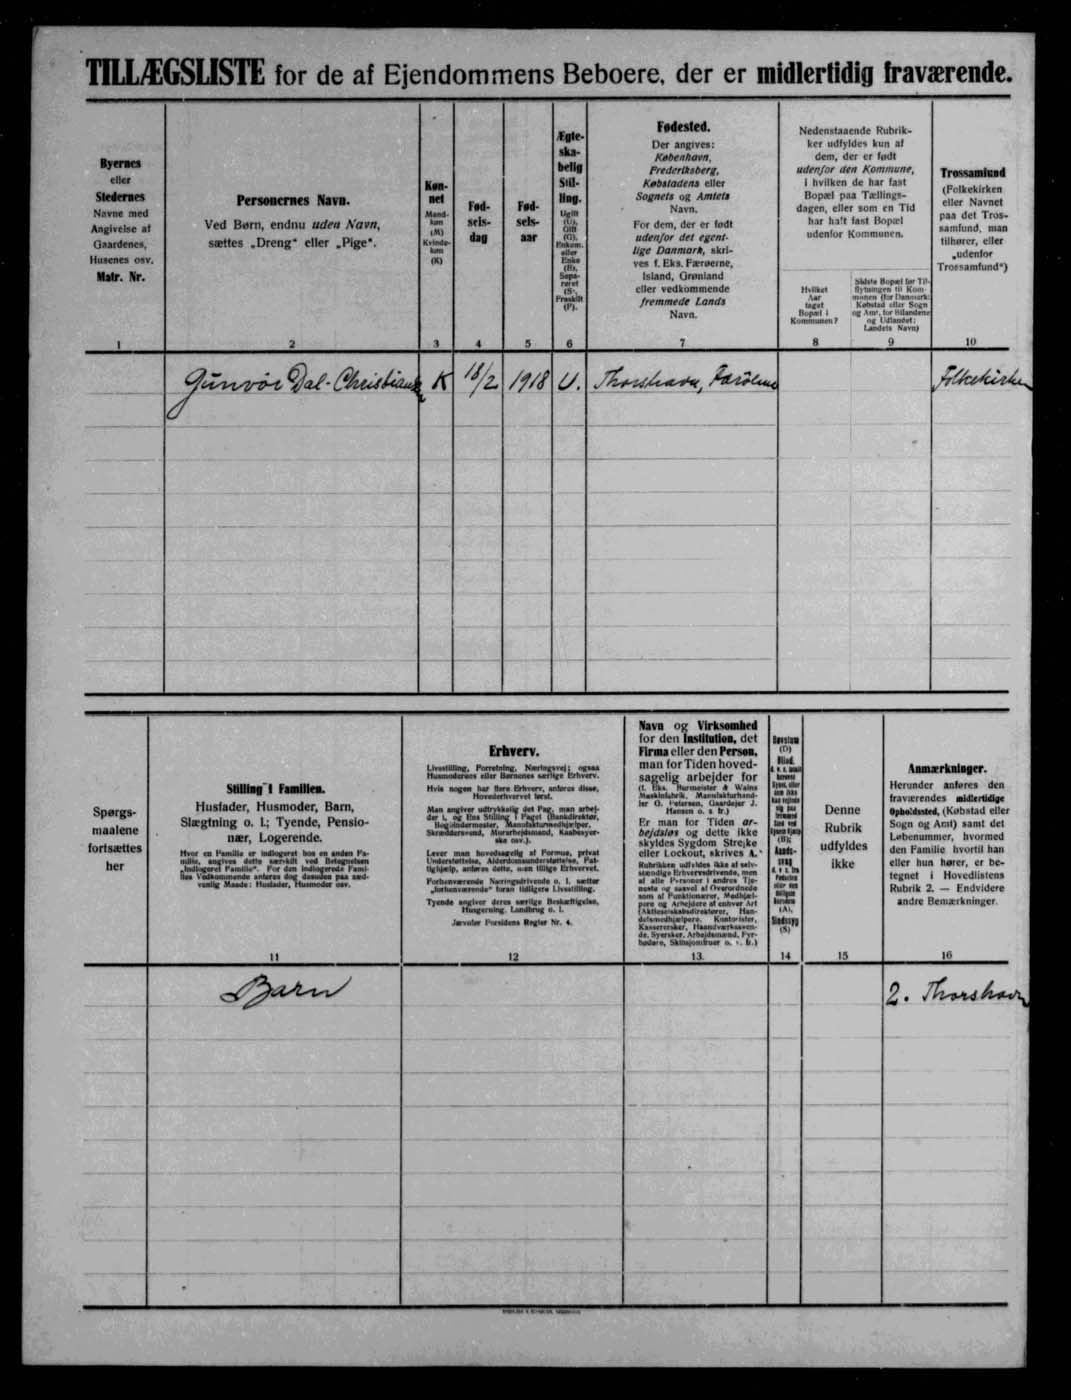 TILLÆGSLISTE for de af Ejendommens Beboere, der er midlertidig fraværende.
Byernes
eller
Stedernes
Navne med
Angivelse af
Gaardenes,
Husenes osv.
Matr. Nr.
1
Personernes Navn.
Ved Børn, endnu uden Navn,
sættes „Dreng“ eller „Pige“.
2
Køn-
net
Mand-
køn
(M)
Kvinde-
køn
(K)
3
Fød-
sels-
dag
4
Fød-
sels-
aar
5
Ægte-
ska-
belig
Stil-
ling.
Ugift
(U),
Gift
(G),
Enkem.
eller
Enke
(E),
Sepa-
reret
(S),
Fraskilt
(F).
6
Fødested.
Der angives:
København,
Frederiksberg,
Købstadens eller
Sognets og Amtets
Navn.
For dem, der er født
udenfor det egent-
lige Danmark, skri-
ves f. Eks. Færøerne,
Island, Grønland
eller vedkommende
fremmede Lands
Navn.
7
Nedenstaaende Rubrik-
ker udfyldes kun af
dem, der er født
udenfor den Kommune,
i hvilken de har fast
Bopæl paa Tællings-
dagen, eller som en Tid
har haft fast Bopæl
udenfor Kommunen.
Hvilket
Aar
taget
Bopæl i
Kommunen?
8
Sidste Bopæl før Til-
flytningen til Kom-
munen (for Danmark:
Købstad eller Sogn
og Amt, for Bilandene
og Udlandet:
Landets Navn)
9
Trossamfund
(Folkekirken
eller Navnet
paa det Tros-
samfund, man
tilhører, eller
„udenfor
Trossamfund“)
10
Gunvør Dal-Christiansen K 18/2 1918 U. Thorshavn, Færöerne Folkekirken
Spørgs-
maalene
fortsættes
her
Stilling i Familien.
Husfader, Husmoder, Barn,
Slægtning o. l.; Tyende, Pensio-
nær, Logerende.
Hvor en Familie er indlogeret hos en anden Fa-
milie, angives dette særskilt ved Betegnelsen
„Indlogeret Familie“. For den indlogerede Fami-
lies Vedkommende anføres dog desuden paa sæd-
vanlig Maade: Husfader, Husmoder osv.
11
Erhverv.
Livsstilling, Forretning, Næringsvej; ogsaa
Husmoderens eller Børnenes særlige Erhverv.
Hvis nogen har flere Erhverv, anføres disse,
Hovederhvervet først.
Man angiver udtrykkelig det Fag, man arbej-
der i, og Ens Stilling i Faget (Bankdirektør,
Bogbindermester, Manufakturmedhjælper,
Skræddersvend, Murarbejdsmand, Kaabesyer-
ske osv.).
Lever man hovedsagelig af Formue, privat
Understøttelse, Alderdomsunderstøttelse, Fat-
tighjælp, anføres dette, men tillige Erhvervet.
Forhenværende Næringsdrivende o. l. sætter
„forhenværende“ foran tidligere Livsstilling.
Tyende angiver deres særlige Beskæftigelse,
Husgerning, Landbrug o. l.
Jævnfør Forsidens Regler Nr. 4.
12
Navn og Virksomhed
for den Institution, det
Firma eller den Person,
man for Tiden hoved-
sagelig arbejder for
(f. Eks. Burmeister & Wains
Maskinfabrik, Manufakturhand-
ler O. Petersen, Gaardejer J.
Hansen o. s. fr.)
Er man for Tiden ar-
bejdsløs og dette ikke
skyldes Sygdom Strejke
eller Lockout, skrives A.
Rubrikken udfyldes ikke af selv-
stændige Erhvervsdrivende, men
af alle Personer i andres Tje-
neste og saavel af Overordnede
som af Funktionærer, Medhjæl-
pere og Arbejdere af enhver Art
(Aktieselskabsdirektører, Han-
delsmedhjælpere, Kontorister,
Kassererskær, Haandværkssven-
de, Syersker, Arbejdsmænd, Fyr-
bødere, Skibsjomfruer o. s. fr.)
13.
Døvstum
(D)
Blind,
(B);
Aands-
svag
(A),
Sindssyg
(S)
14
Denne
Rubrik
udfyldes
ikke
15
Anmærkninger.
Herunder anføres den
fraværendes midlertidige
Opholdssted, (Købstad eller
Sogn og Amt) samt det
Løbenummer, hvormed
den Familie hvortil han
eller hun hører, er be-
tegnet i Hovedlistens
Rubrik 2. — Endvidere
andre Bemærkninger.
16
Barn 2. Thorshavn